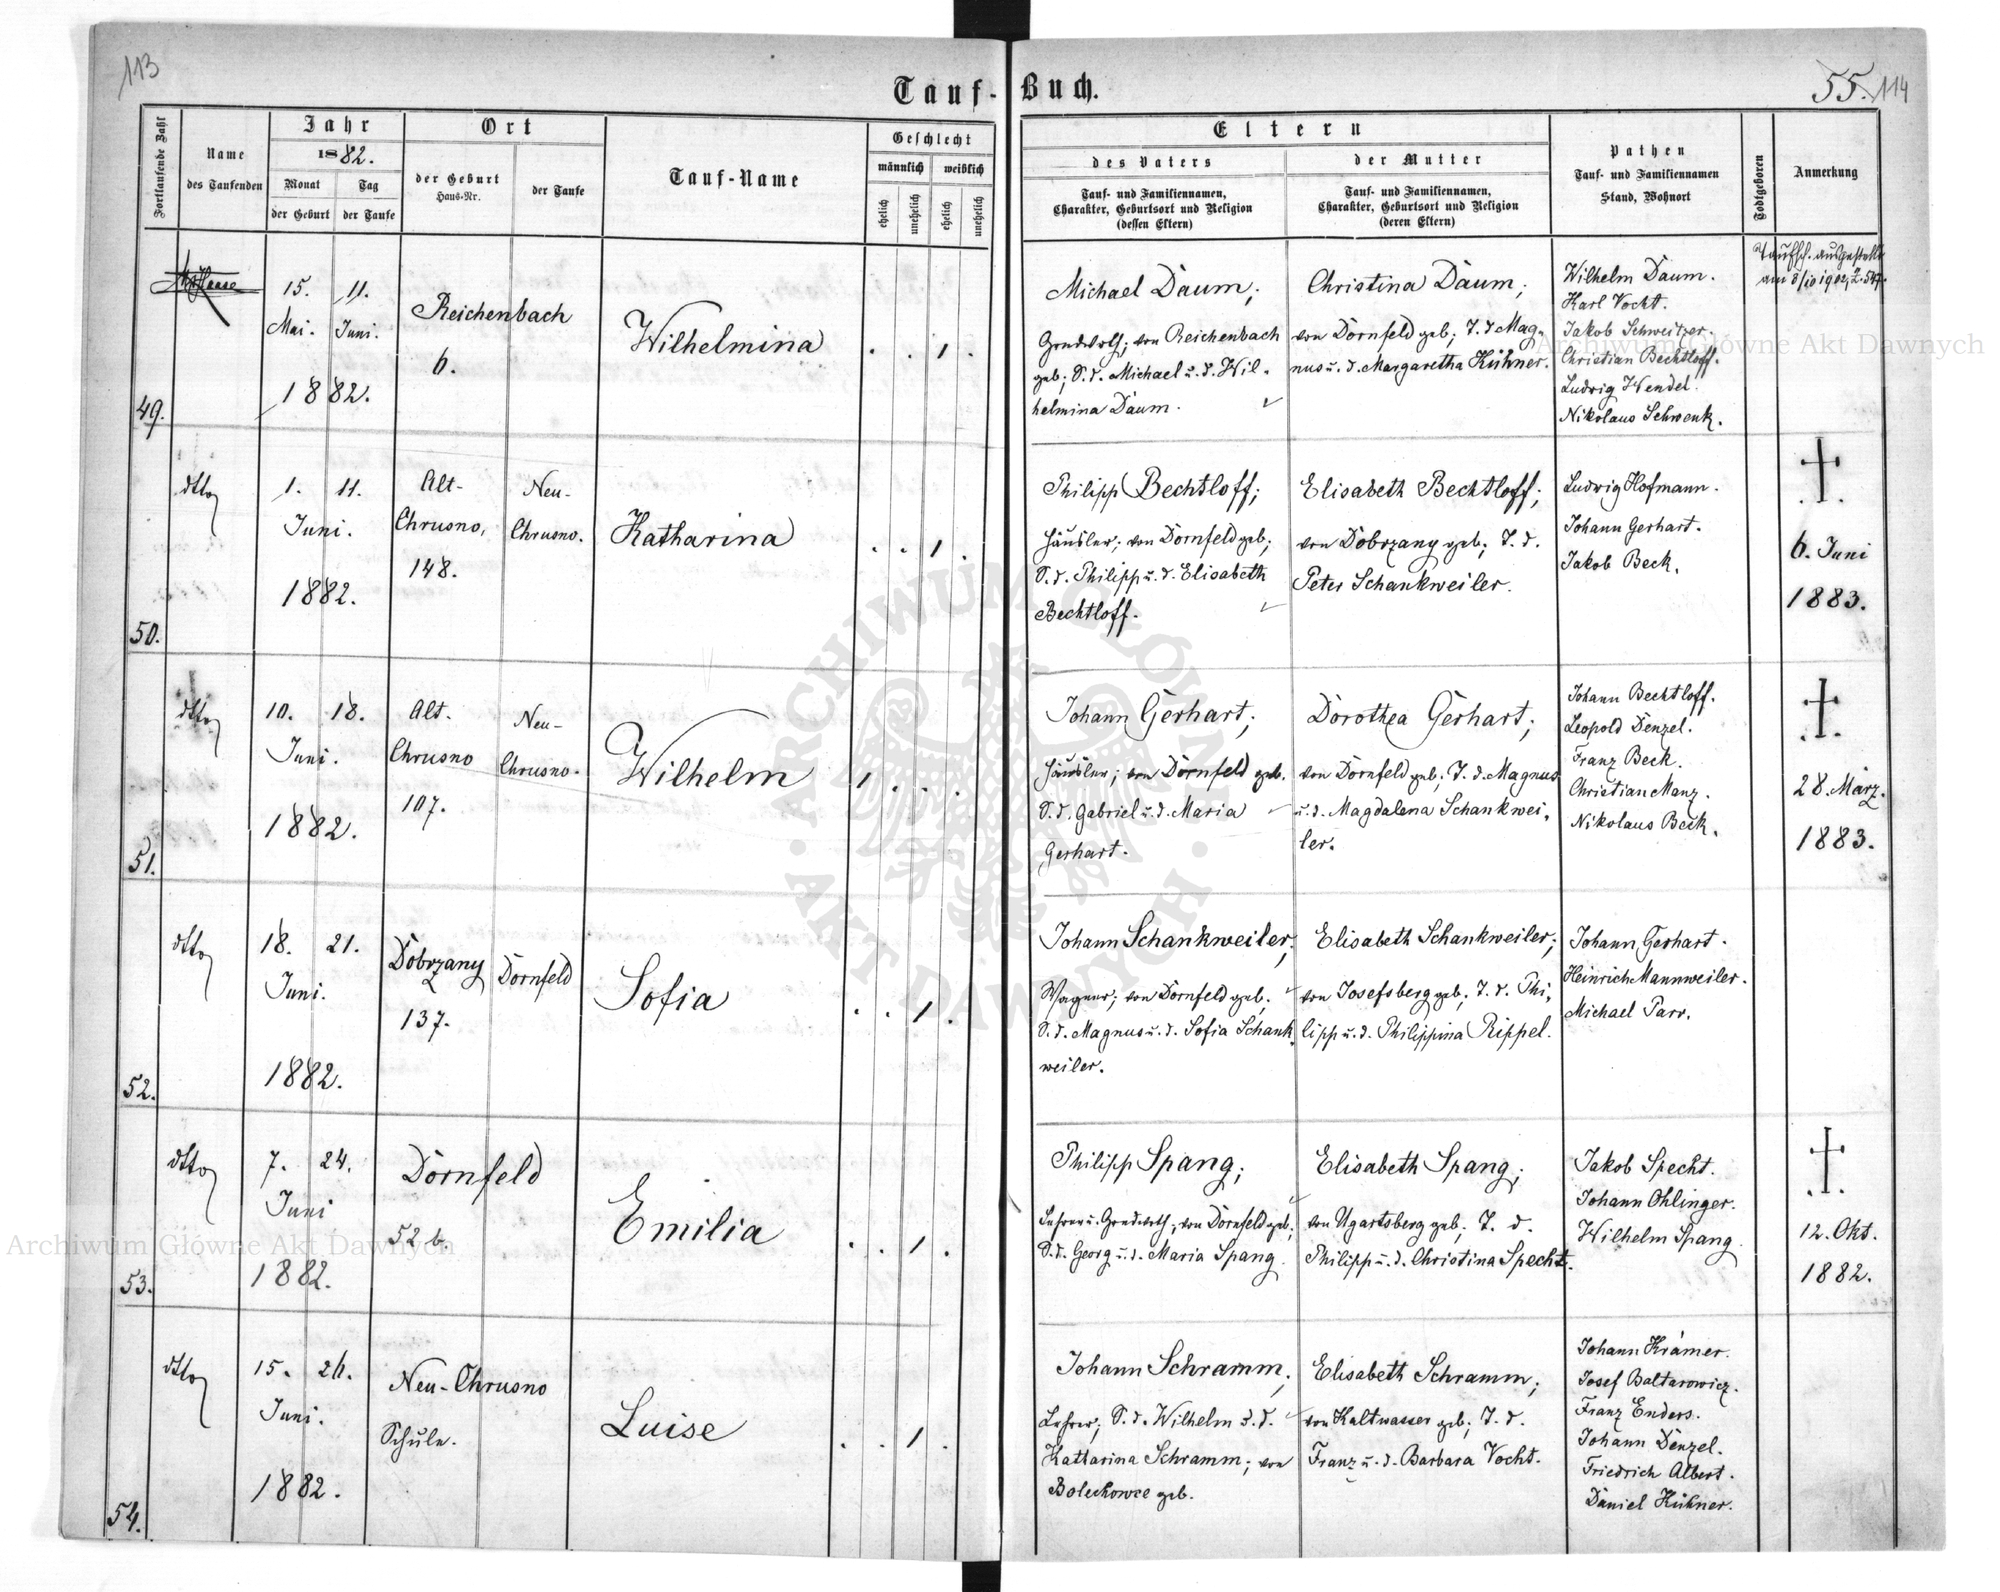 113
Tauf-Buch.
55. 114
Fortlaufende Zahl
Name
des Taufenden
Jahr
1882.
Monat
Tag
der Geburt
der Taufe
Ort
der Geburt
Haus-Nr.
der Taufe
Tauf-Name
Geschlecht
männlich
weiblich
ehelich
unehelich
ehelich
unehelich
Eltern
des Vaters
Tauf- und Familiennamen,
Charakter, Geburtsort und Religion
(dessen Eltern)
der Mutter
Tauf- und Familiennamen,
Charakter, Geburtsort und Religion
(deren Eltern)
Pathen
Tauf- und Familiennamen
Stand, Wohnort
Todtgeboren
Anmerkung
49.
15. 11.
Mai. Juni.
1882.
Reichenbach
6.
Wilhelmina
. . 1 .
Michael Daum;
Grundwirth; von Reichenbach
geb; S. d. Michael u. d. Wil-
helmina Daum.
Christina Daum;
von Dornfeld geb; T. d. Mag-
nus u. d. Margaretha Kühner.
Wilhelm Daum.
Karl Vocht.
Jakob Schweitzer.
Christian Bechtloff.
Ludwig Wendel.
Nikolaus Schwenk.
Taufsch. ausgestellt
am 8/10 1902, Z.
50.
dtto
1. 11.
Juni.
1882.
Alt-
Chrusno,
148.
Neu-
Chrusno.
Katharina
. . 1 .
Philipp Bechtloff;
Häusler; von Dornfeld geb;
S. d. Philipp u. d. Elisabeth
Bechtloff.
Elisabeth Bechtloff;
von Dobrzany geb; T. d.
Peter Schankweiler.
Ludwig Hofmann.
Johann Gerhart.
Jakob Beck.
6. Juni
1883.
51.
dtto
10. 18.
Juni.
1882.
Alt.
Chrusno
107.
Neu-
Chrusno.
Wilhelm
1 . . .
Johann Gerhart;
Häusler; von Dornfeld geb.
S. d. Gabriel u. d. Maria
Gerhart.
Dorothea Gerhart;
von Dornfeld geb; T. d. Magnus
u. d. Magdalena Schankwei-
ler.
Johann Bechtloff.
Leopold Denzel.
Franz Beck.
Christian Manz.
Nikolaus Beck.
28. März.
1883.
52.
dtto
18. 21.
Juni.
1882.
Dobrzany
137.
Dornfeld
Sofia
. . 1 .
Johann Schankweiler;
Wagner; von Dornfeld geb.
S. d. Magnus u. d. Sofia Schank-
weiler.
Elisabeth Schankweiler;
von Josefsberg geb; T. d. Phi-
lipp u. d. Philippina Rippel.
Johann Gerhart.
Heinrich Mannweiler.
Michael Parr.
53.
dtto
7. 24.
Juni
1882.
Dornfeld
52 b.
Emilia
. . 1 .
Philipp Spang;
Lehrer u. Grundwirth; von Dornfeld geb;
S. d. Georg u. d. Maria Spang.
Elisabeth Spang;
von Ugartsberg geb; T. d.
Philipp u. d. Christina Specht.
Jakob Specht.
Johann Ohlinger.
Wilhelm Spang.
12. Okt.
1882.
54.
dtto
15. 26.
Juni.
1882.
Neu-Chrusno
Schule.
Luise
. . 1 .
Johann Schramm;
Lehrer; S. d. Wilhelm u. d.
Katharina Schramm; von
Bolechowce geb.
Elisabeth Schramm;
von Kaltwasser geb; T. d.
Franz u. d. Barbara Vocht.
Johann Krämer.
Josef Baltarowicz.
Franz Enders.
Johann Denzel.
Friedrich Albert.
Daniel Kühner.
Archiwum Główne Akt Dawnych
Archiwum Główne Akt Dawnych
· ARCHIWUM GŁÓWNE · AKT DAWNYCH